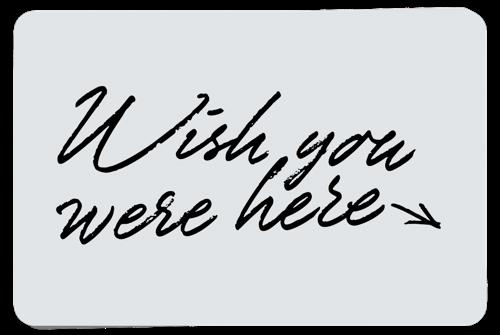 Wish you
were here →